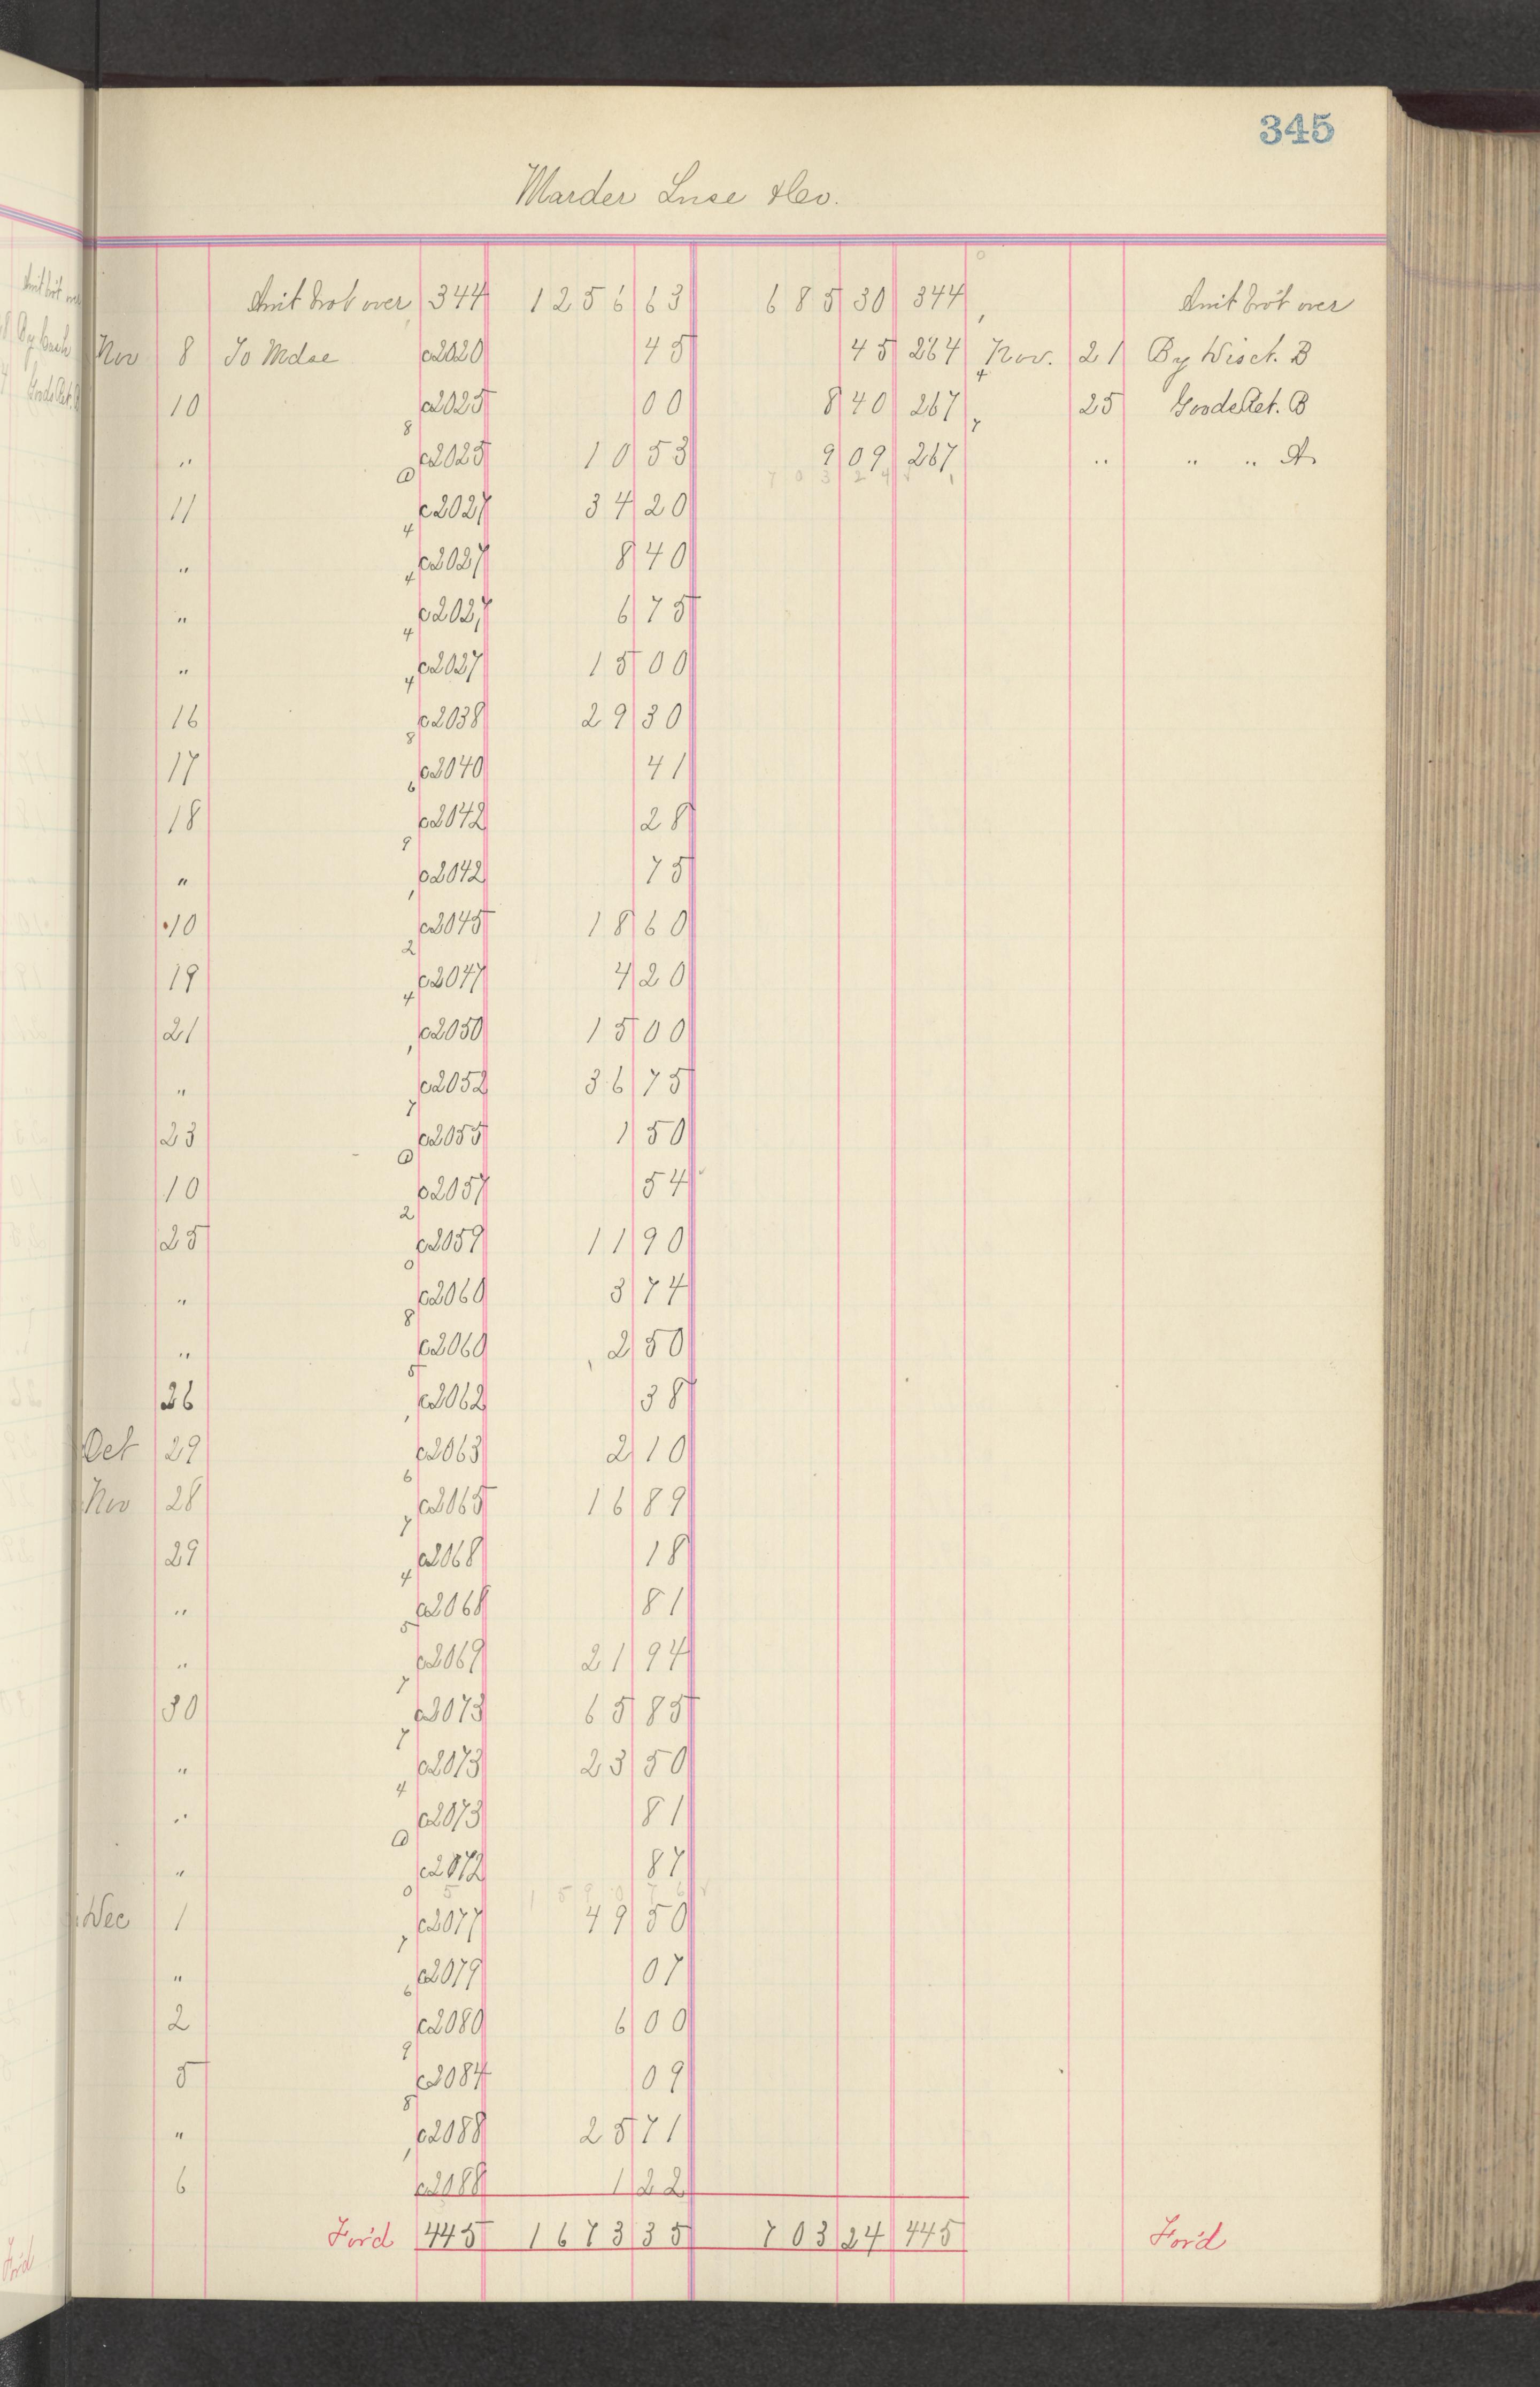 345
Marder Luse & Co.
Amt brot over 344 1256 63 685 30 344 Amt bro't over
Nov 8 To Mdse c2020 45 45 264 Nov. 21 By Disct. B
10 8 c2025 00 8 40 267 25 Goods Ret. B
" 0 c2025 10 53 9 09 267 " " " A
703 24
11 4 c2027 34 20
" 4 c2027 8 40
" 4 c2027 6 75
" 4 c2027 15 00
16 8 c2038 29 30
17 6 c2040 41
18 9 c2042 28
" 1 c2042 75
10 2 c2045 18 60
19 4 c2047 4 20
21 1 c2050 15 00
" 7 c2052 36 75
23 0 c2055 1 50
10 2 c2057 54
25 0 c2059 11 90
" 8 c2060 3 74
" 5 c2060 2 50
26 1 c2062 38
Oct 29 6 c2063 2 10
Nov 28 7 c2065 16 89
29 4 c2068 18
" 5 c2068 81
" 7 c2069 21 94
30 7 c2073 65 85
" 4 c2073 23 50
" 0 c2073 81
" 0 c2072 87
Dec 1 7 c2077 49 50
" 6 c2079 07
2 9 c2080 6 00
5 8 c2084 09
" 1 c2088 25 71
6 c2088 1 22
For'd 445 1673 35 703 24 445 For'd